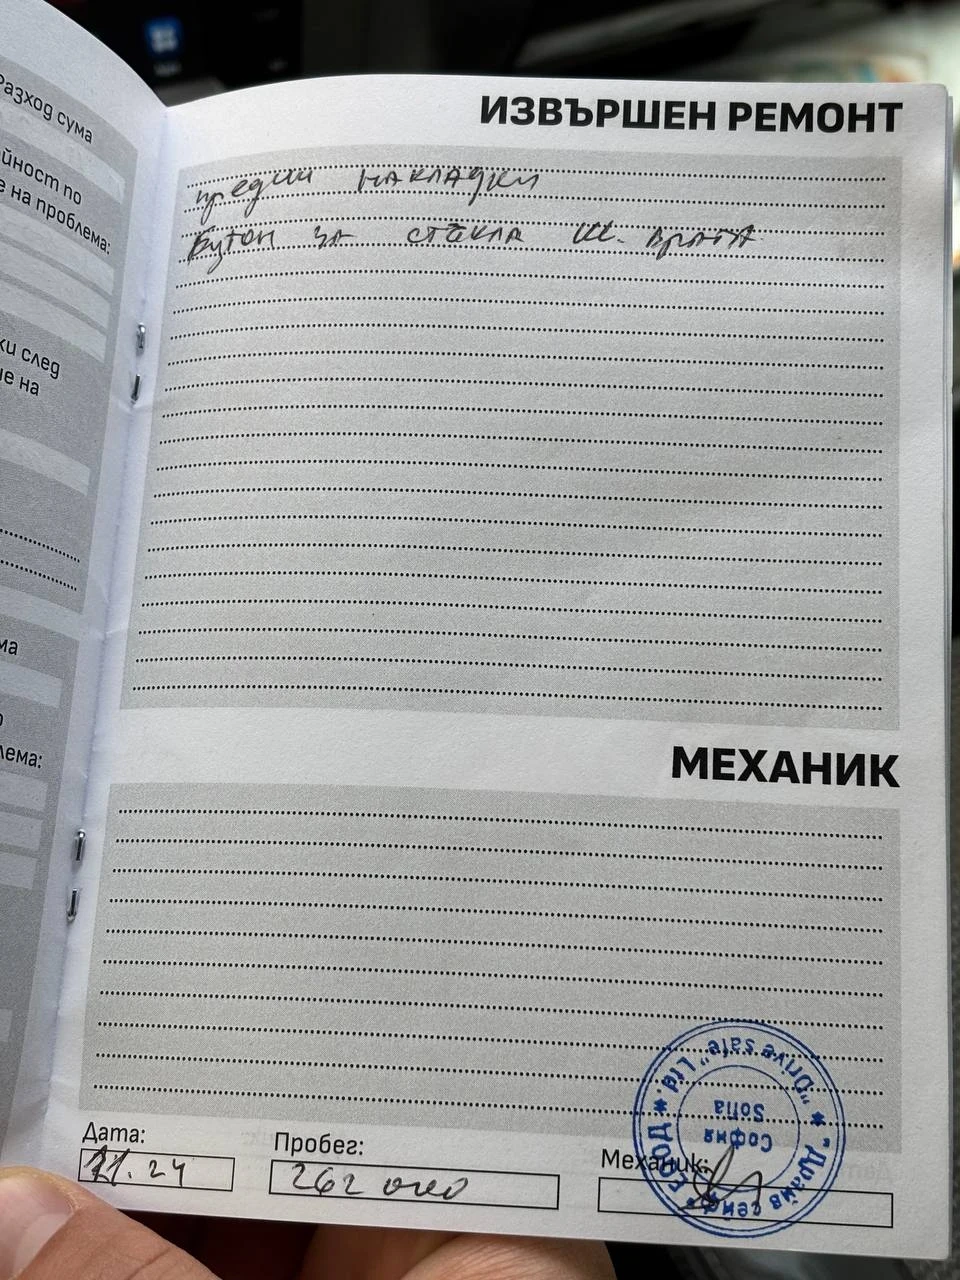 Разход сума
йност по
е на проблема:
ки след
не на
ма
о
лема:
ИЗВЪРШЕН РЕМОНТ
предни накладки
Бутон за стъкла ш. врата
МЕХАНИК
Дата:
11.24
Пробег:
262 000
Механик:
"Драйв сейф" ЕООД * "Drive safe" Ltd. *
София
Sofia